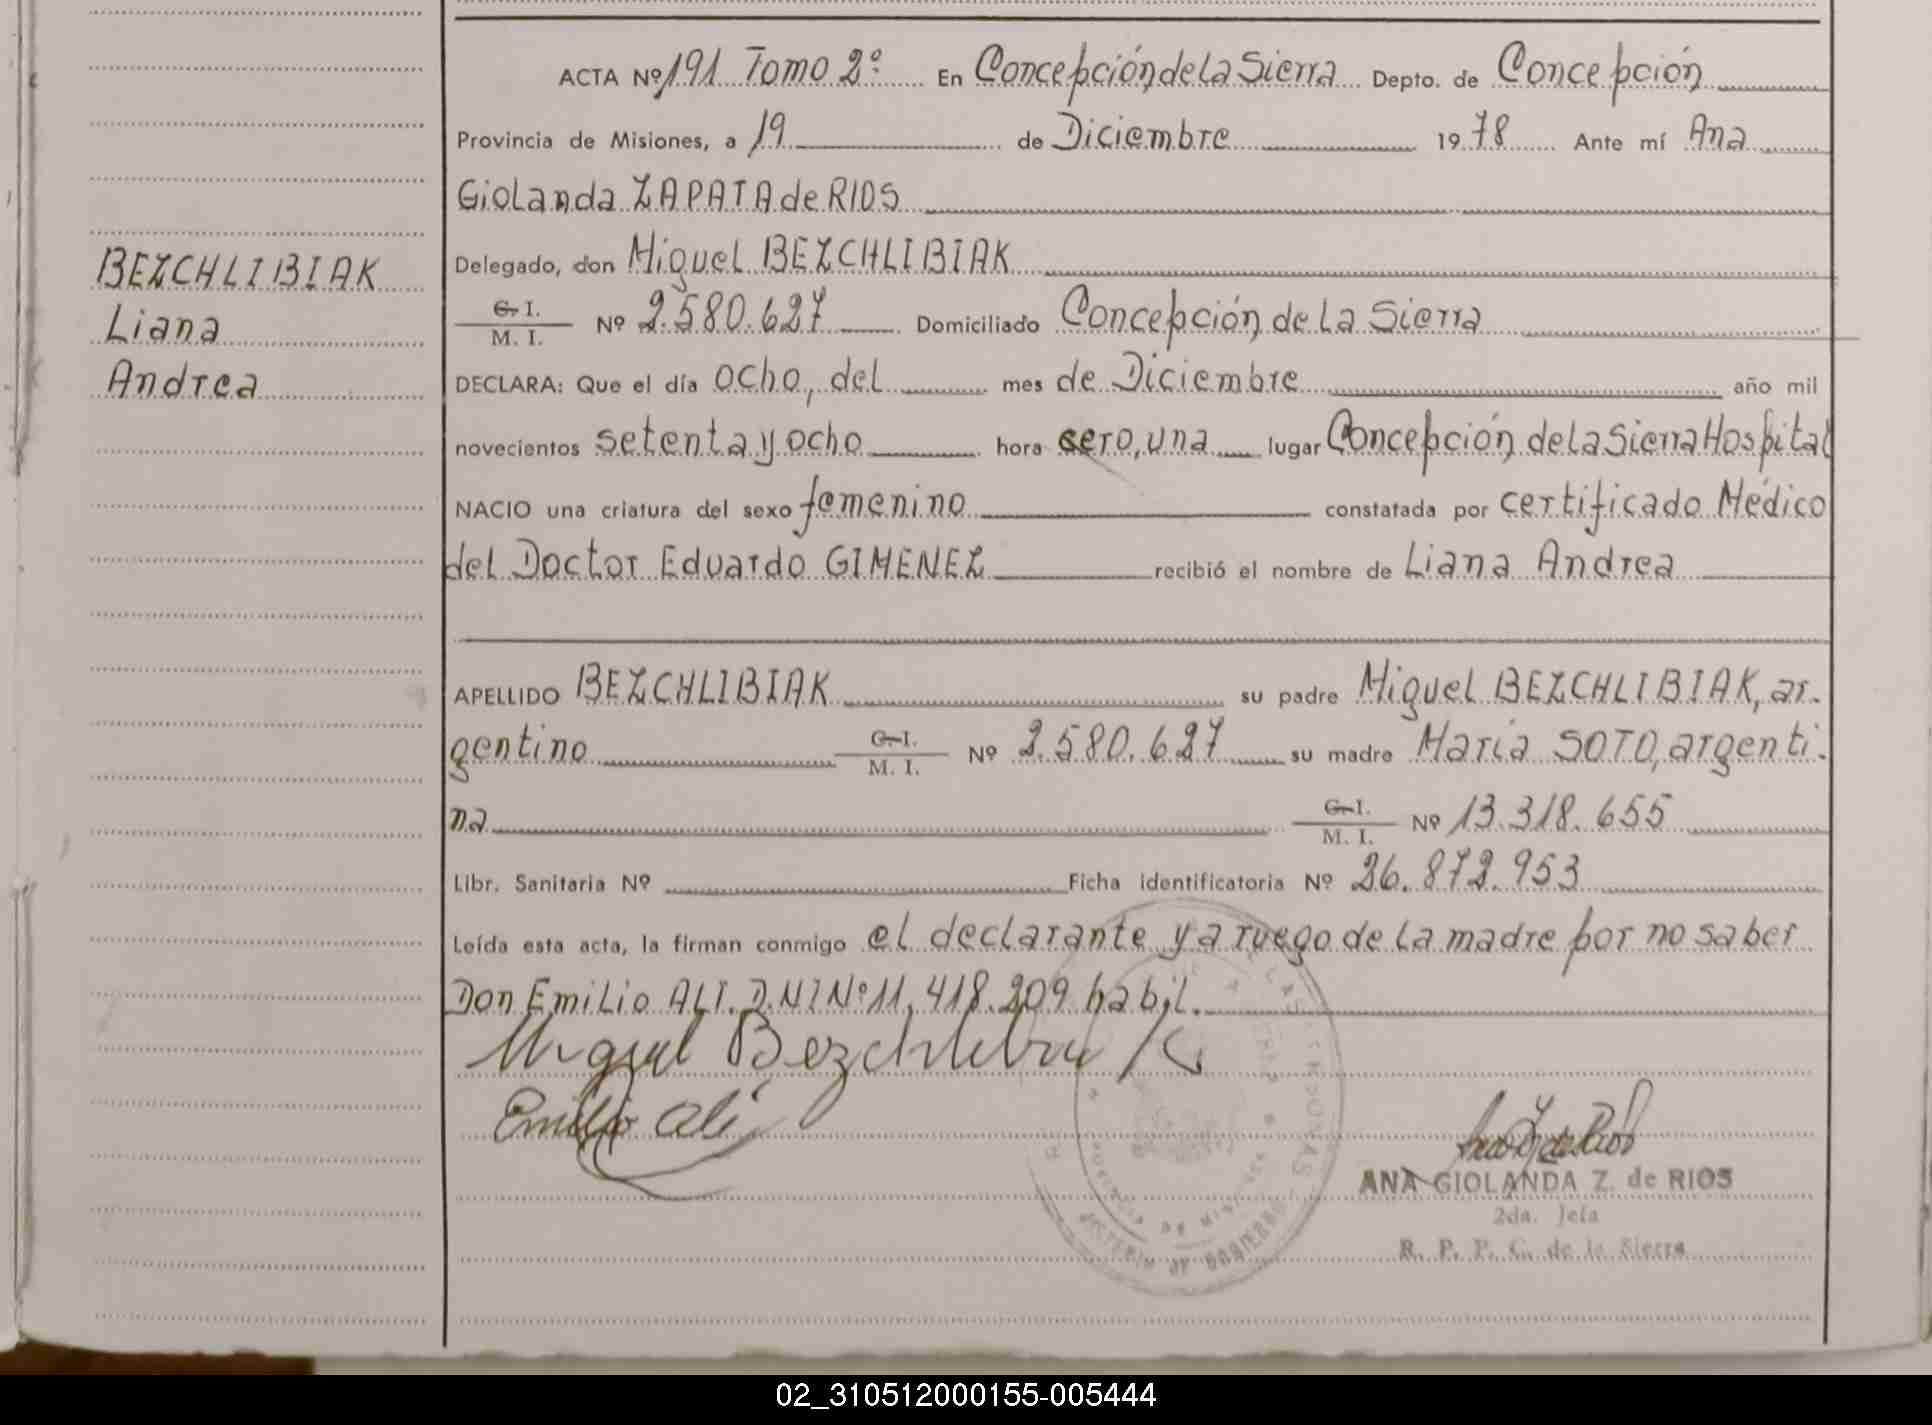 BEZCHLIBIAK
Liana
Andrea
ACTA Nº 191 Tomo 2º En Concepción de La Sierra Depto. de Concepción
Provincia de Misiones, a 19 de Diciembre 1978 Ante mí Ana
Giolanda ZAPATA de RIOS
Delegado, don Miguel BEZCHLIBIAK
C. I.
M. I. Nº 2.580.627 Domiciliado Concepción de La Sierra
DECLARA: Que el día ocho, del mes de Diciembre año mil
novecientos setenta y ocho hora cero, una lugar Concepción de La Sierra Hospital
NACIO una criatura del sexo femenino constatada por certificado Médico
del Doctor Eduardo GIMENEZ recibió el nombre de Liana Andrea
APELLIDO BEZCHLIBIAK su padre Miguel BEZCHLIBIAK, ar-
gentino C. I. M. I. Nº 2.580.627 su madre María SOTO, argenti-
na C. I. M. I. Nº 13.318.655
Libr. Sanitaria Nº Ficha identificatoria Nº 26.872.953
Leída esta acta, la firman conmigo el declarante y a ruego de la madre por no saber
Don Emilio ALI. D.N.I Nº 11.418.209 habil.
Miguel Bezchlibiak
Emilio Ali
ANA GIOLANDA Z. de RIOS
2da. Jefa
R. P. P. C. de la Sierra
PROVINCIA DE MISIONES
MINISTERIO DE GOBIERNO
02_310512000155-005444